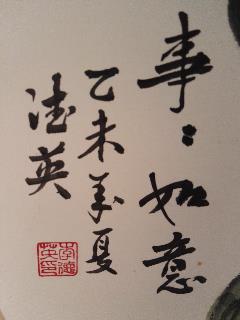 事:如意
乙未年夏
德英